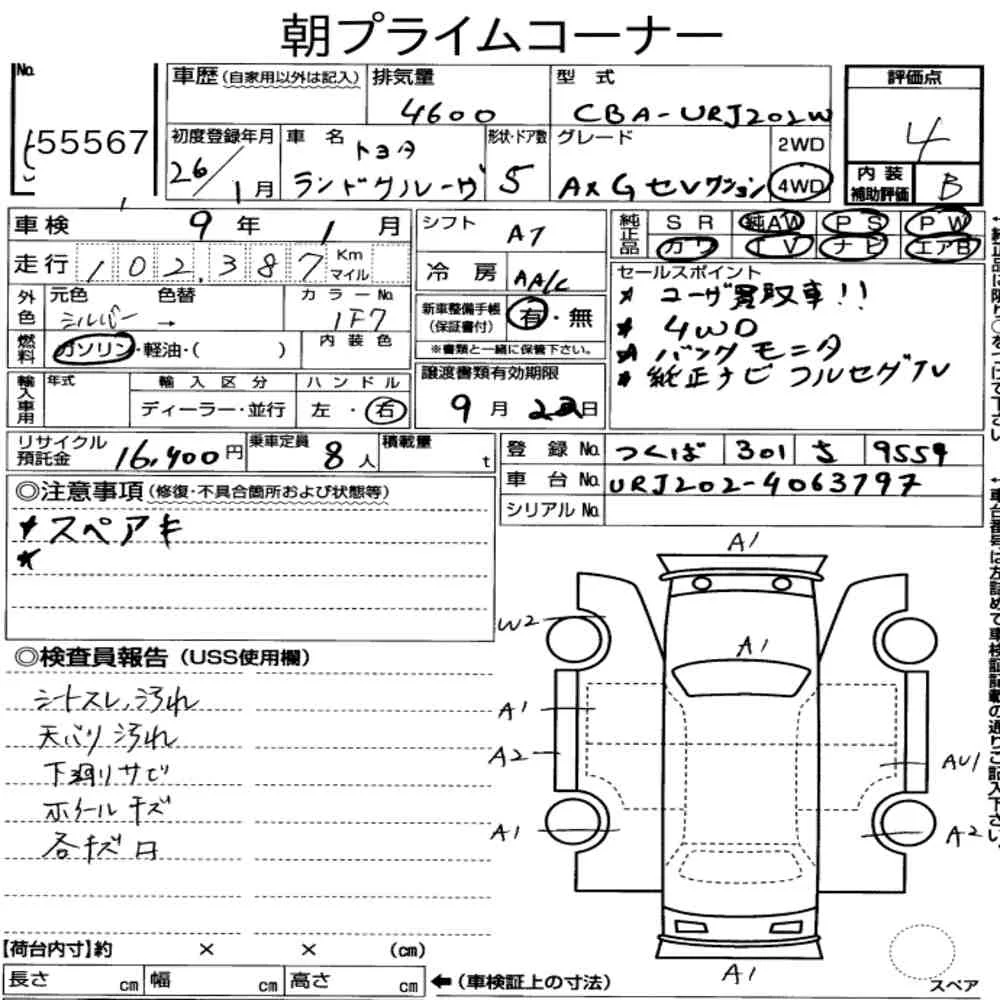 朝プライムコーナー
No. 55567
車歴(自家用以外は記入)
排気量 4600
型式 CBA-URJ202W
評価点 4
内装補助評価 B
初度登録年月 26/1月
車名 トヨタ ランドクルーザ
形状・ドア数 5
グレード AX Gセレクション
2WD
4WD
車検 9年1月
走行 102,387 Km マイル
外色 元色 シルバー 色替 →
カラーNo. 1F7
燃料 ガソリン・軽油・( )
内装色
輸入車用 年式
輸入区分 ディーラー・並行
ハンドル 左・右
シフト AT
冷房 AA/C
新車整備手帳(保証書付) 有・無
※書類と一緒に保管下さい。
譲渡書類有効期限
9月 日
純正品 SR 純AW PS PW
カワ TV ナビ エアB
セールスポイント
* ユーザ買取車!!
* 4WD
* バックモニタ
* 純正ナビ フルセグTV
リサイクル預託金 16,400円
乗車定員 8人
積載量 t
登録No. つくば 301 さ 9559
車台No. URJ202-4063797
シリアルNo.
◎注意事項(修復・不具合箇所および状態等)
* スペアキ
*
◎検査員報告(USS使用欄)
シートスレ,汚れ
天バリ汚れ
下廻リサビ
ホイールキズ
各キズ凹
A1
W2
A1
A1
A2
A1
AU1
A2
A1
スペア
【荷台内寸】約 × × (cm)
長さ cm 幅 cm 高さ cm ←(車検証上の寸法)